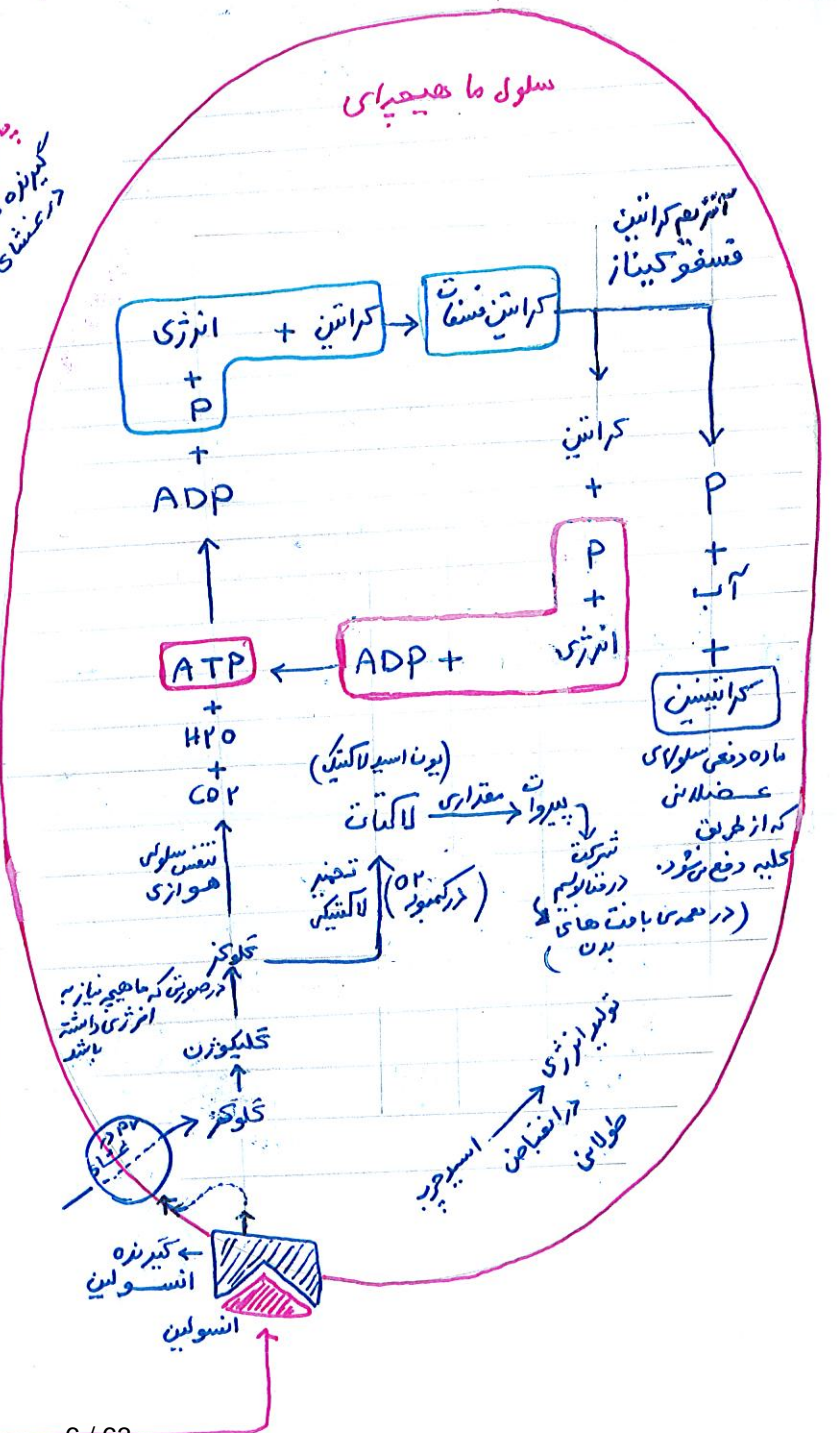 سلول ماهیچه‌ای
گیرنده
در غشای
آنزیم کراتین
فسفوکیناز
انرژی + کراتین → کراتین فسفات
+
P
+
ADP
کراتین
+
P
+
انرژی
ADP +
ATP
P
+
آب
+
کراتینین
ماده دفعی سلولهای
عضلانی
که از طریق
کلیه دفع می‌شود.
+
H۲O
+
CO۲
تنفس سلولی
هوازی
(یون اسید لاکتیک)
لاکتات
مقداری
پیروات
شرکت
در متابولیسم
(در همه‌ی بافت های
بدن)
تخمیر
لاکتیکی
(در کمبود O۲)
گلوکز
در صورتی که ماهیچه نیاز به
انرژی داشته
باشد
گلیکوژن
گلوکز
تولید انرژی
در انقباض
طولانی
اسید چرب
گیرنده
انسولین
انسولین
6 / 62